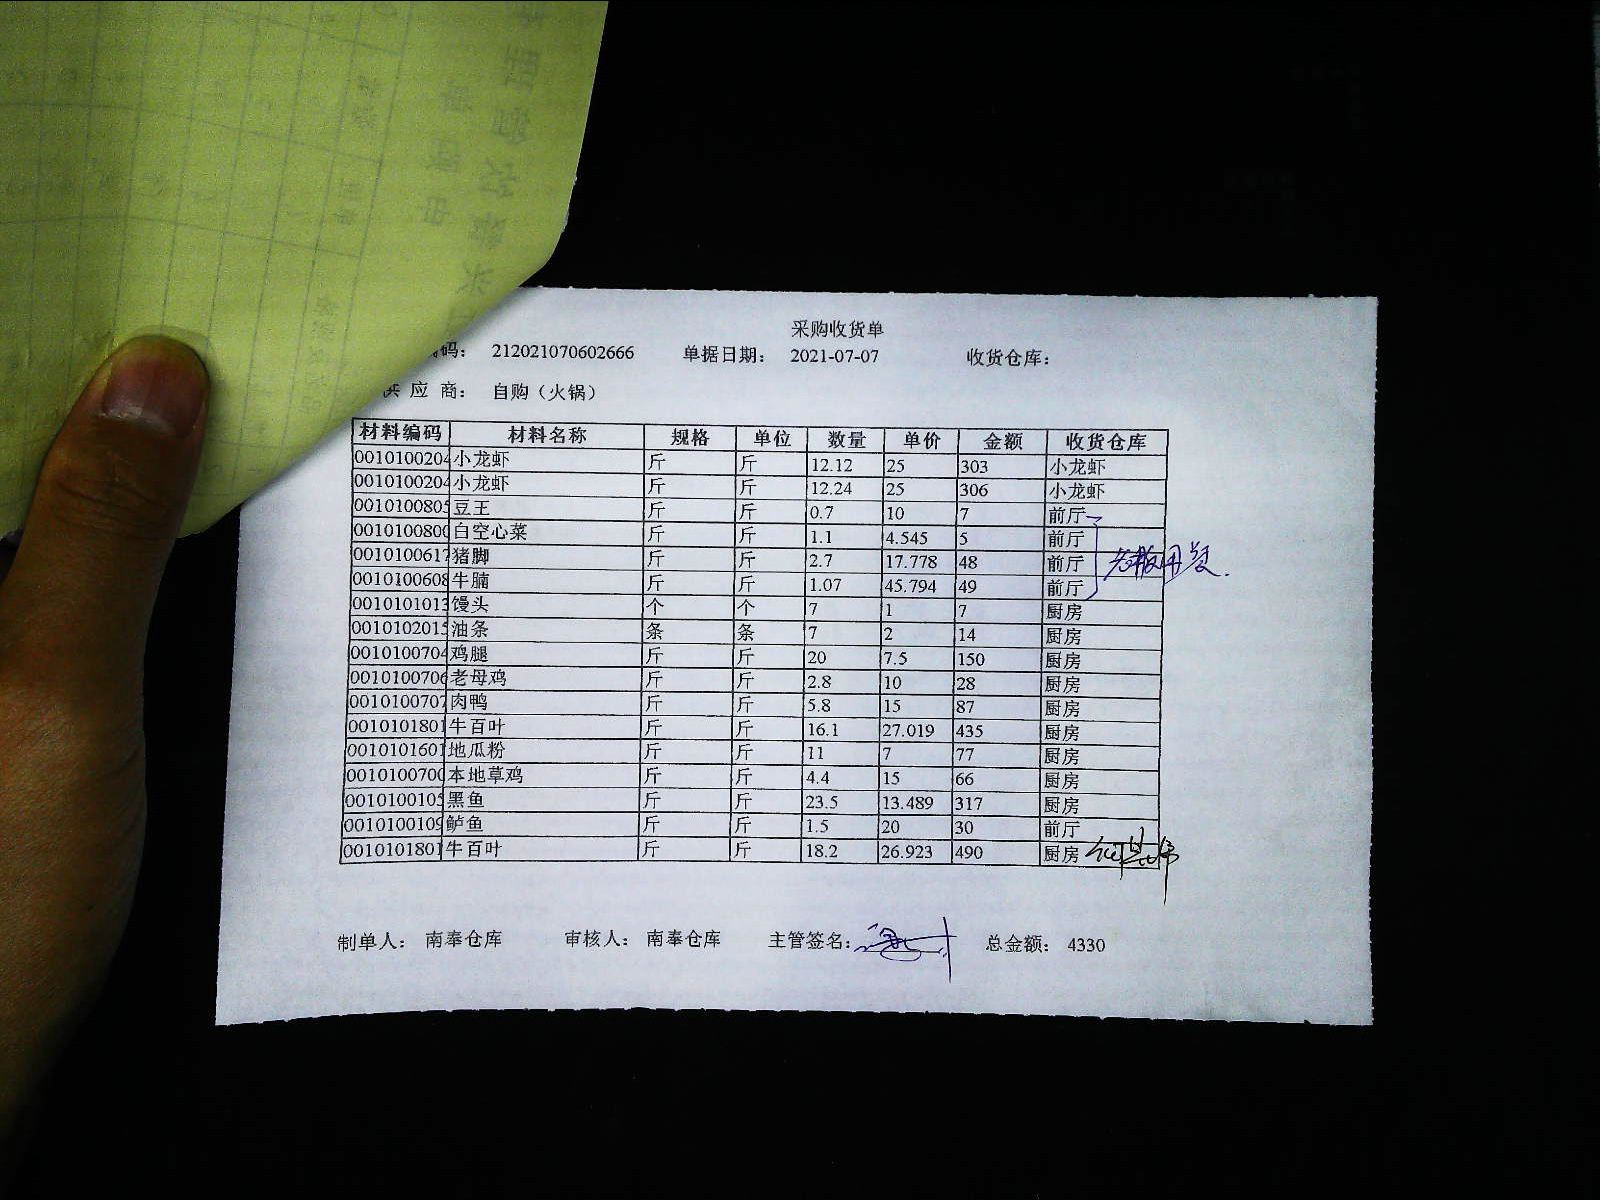 采购收货单
码： 212021070602666 单据日期： 2021-07-07 收货仓库：
供 应 商： 自购（火锅）
材料编码 材料名称 规格 单位 数量 单价 金额 收货仓库
0010100204 小龙虾 斤 斤 12.12 25 303 小龙虾
0010100204 小龙虾 斤 斤 12.24 25 306 小龙虾
0010100805 豆王 斤 斤 0.7 10 7 前厅
0010100800 白空心菜 斤 斤 1.1 4.545 5 前厅
0010100617 猪脚 斤 斤 2.7 17.778 48 前厅
0010100608 牛腩 斤 斤 1.07 45.794 49 前厅
0010101013 馒头 个 个 7 1 7 厨房
0010102015 油条 条 条 7 2 14 厨房
0010100704 鸡腿 斤 斤 20 7.5 150 厨房
0010100706 老母鸡 斤 斤 2.8 10 28 厨房
0010100707 肉鸭 斤 斤 5.8 15 87 厨房
0010101801 牛百叶 斤 斤 16.1 27.019 435 厨房
0010101601 地瓜粉 斤 斤 11 7 77 厨房
0010100700 本地草鸡 斤 斤 4.4 15 66 厨房
0010100105 黑鱼 斤 斤 23.5 13.489 317 厨房
0010100109 鲈鱼 斤 斤 1.5 20 30 前厅
0010101801 牛百叶 斤 斤 18.2 26.923 490 厨房
制单人： 南奉仓库 审核人： 南奉仓库 主管签名： 总金额： 4330